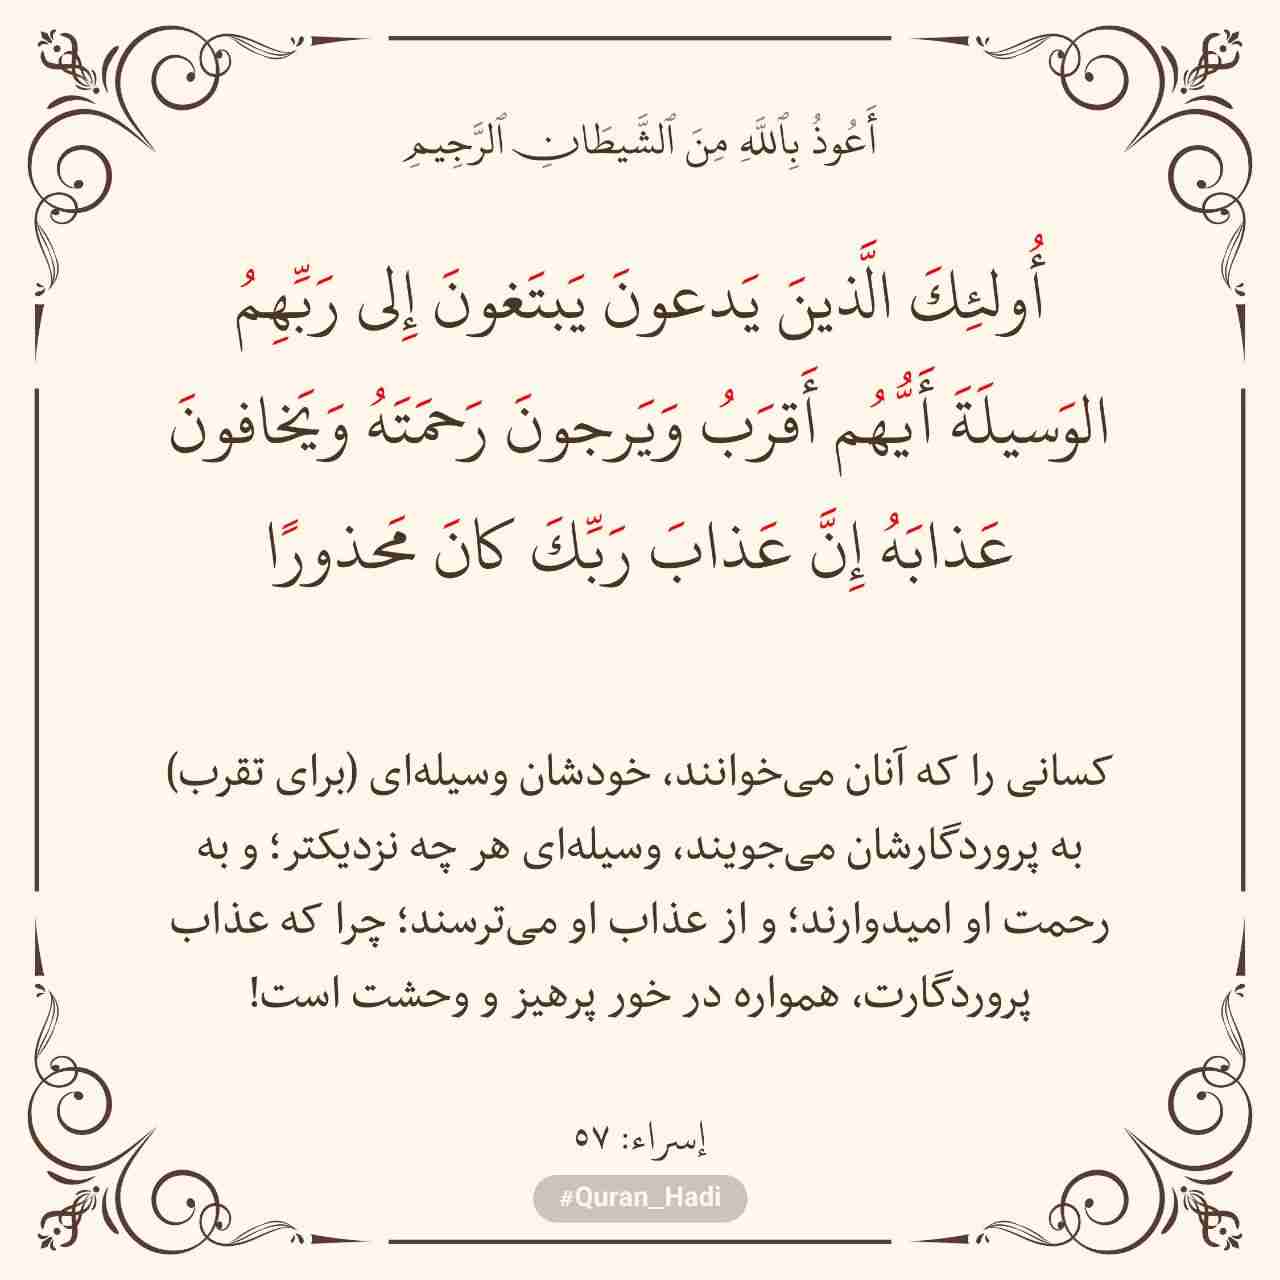 أَعُوذُ بِٱللَّهِ مِنَ ٱلشَّيطَانِ ٱلرَّجِيمِ
أُولئِكَ الَّذينَ يَدعونَ يَبتَغونَ إِلى رَبِّهِمُ
الوَسيلَةَ أَيُّهُم أَقرَبُ وَيَرجونَ رَحمَتَهُ وَيَخافونَ
عَذابَهُ إِنَّ عَذابَ رَبِّكَ كانَ مَحذورًا
کسانی را که آنان می‌خوانند، خودشان وسیله‌ای (برای تقرب)
به پروردگارشان می‌جویند، وسیله‌ای هر چه نزدیکتر؛ و به
رحمت او امیدوارند؛ و از عذاب او می‌ترسند؛ چرا که عذاب
پروردگارت، همواره در خور پرهیز و وحشت است!
إسراء: ۵۷
#Quran_Hadi